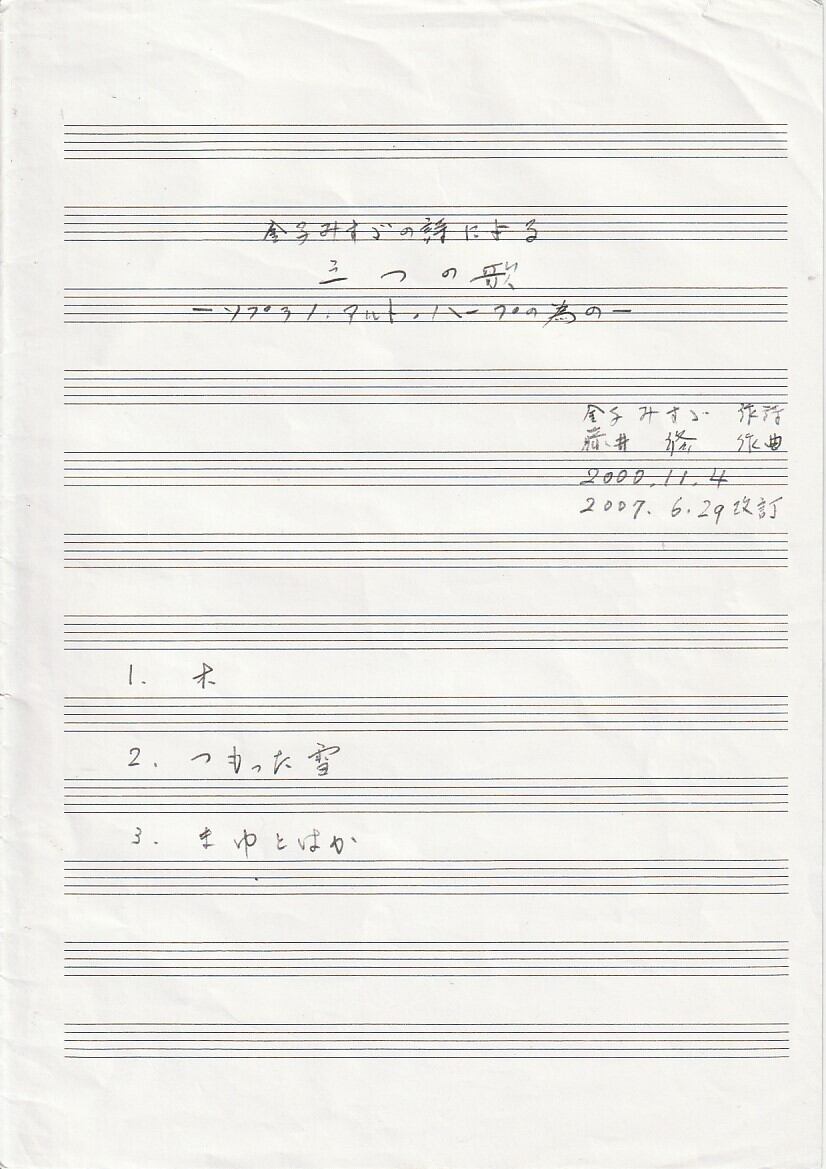 金子みすゞの詩による
三つの歌
ーソプラノ.アルト.ハープの為のー
金子みすゞ 作詩
藤井 修 作曲
2000.11.4
2007.6.29改訂
1. 木
2. つもった雪
3. まゆとはか